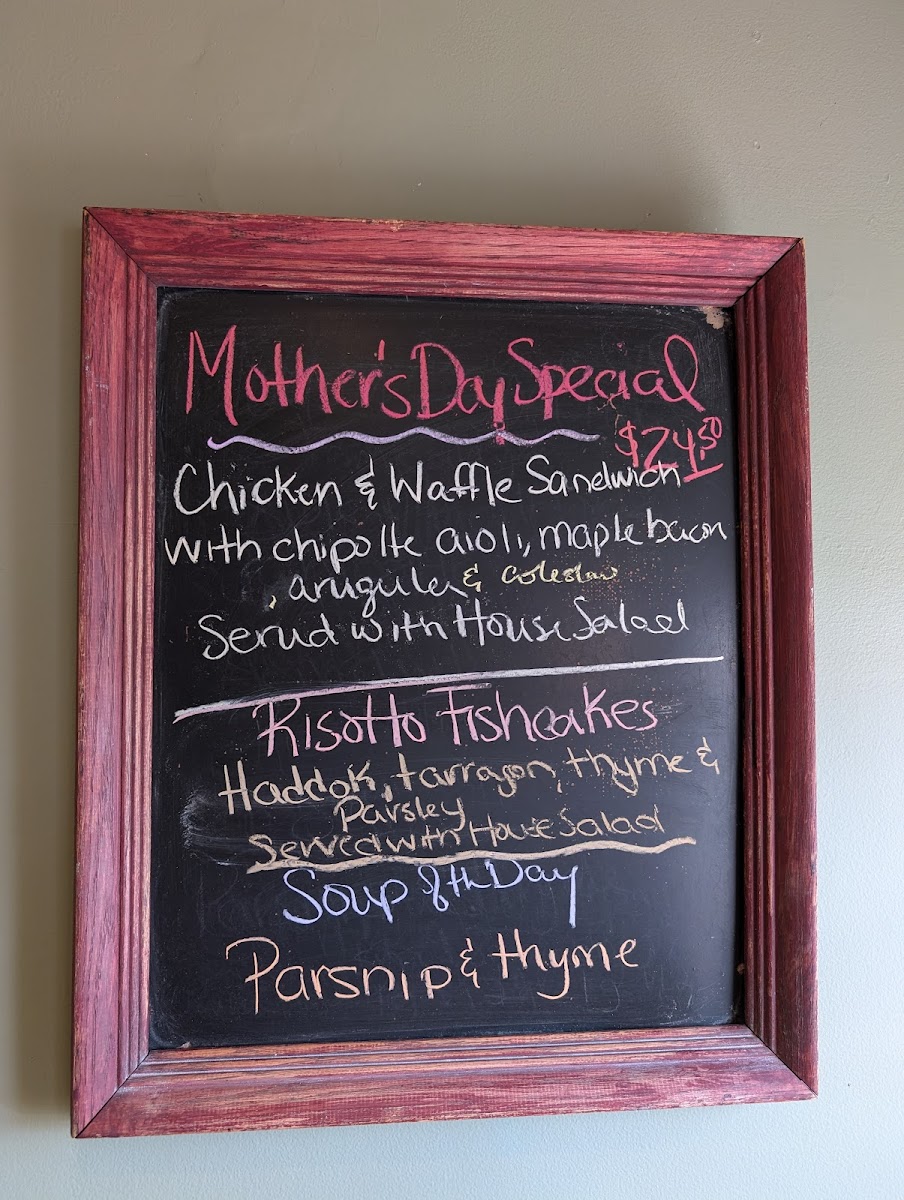 Mother's Day Special
$24.50
Chicken & Waffle Sandwich
with chipolte aioli, maple bacon
, arugula & coleslaw
Served with House Salad
Risotto Fishcakes
Haddok, tarragon, thyme &
Parsley
Served with House Salad
Soup of th Day
Parsnip & thyme